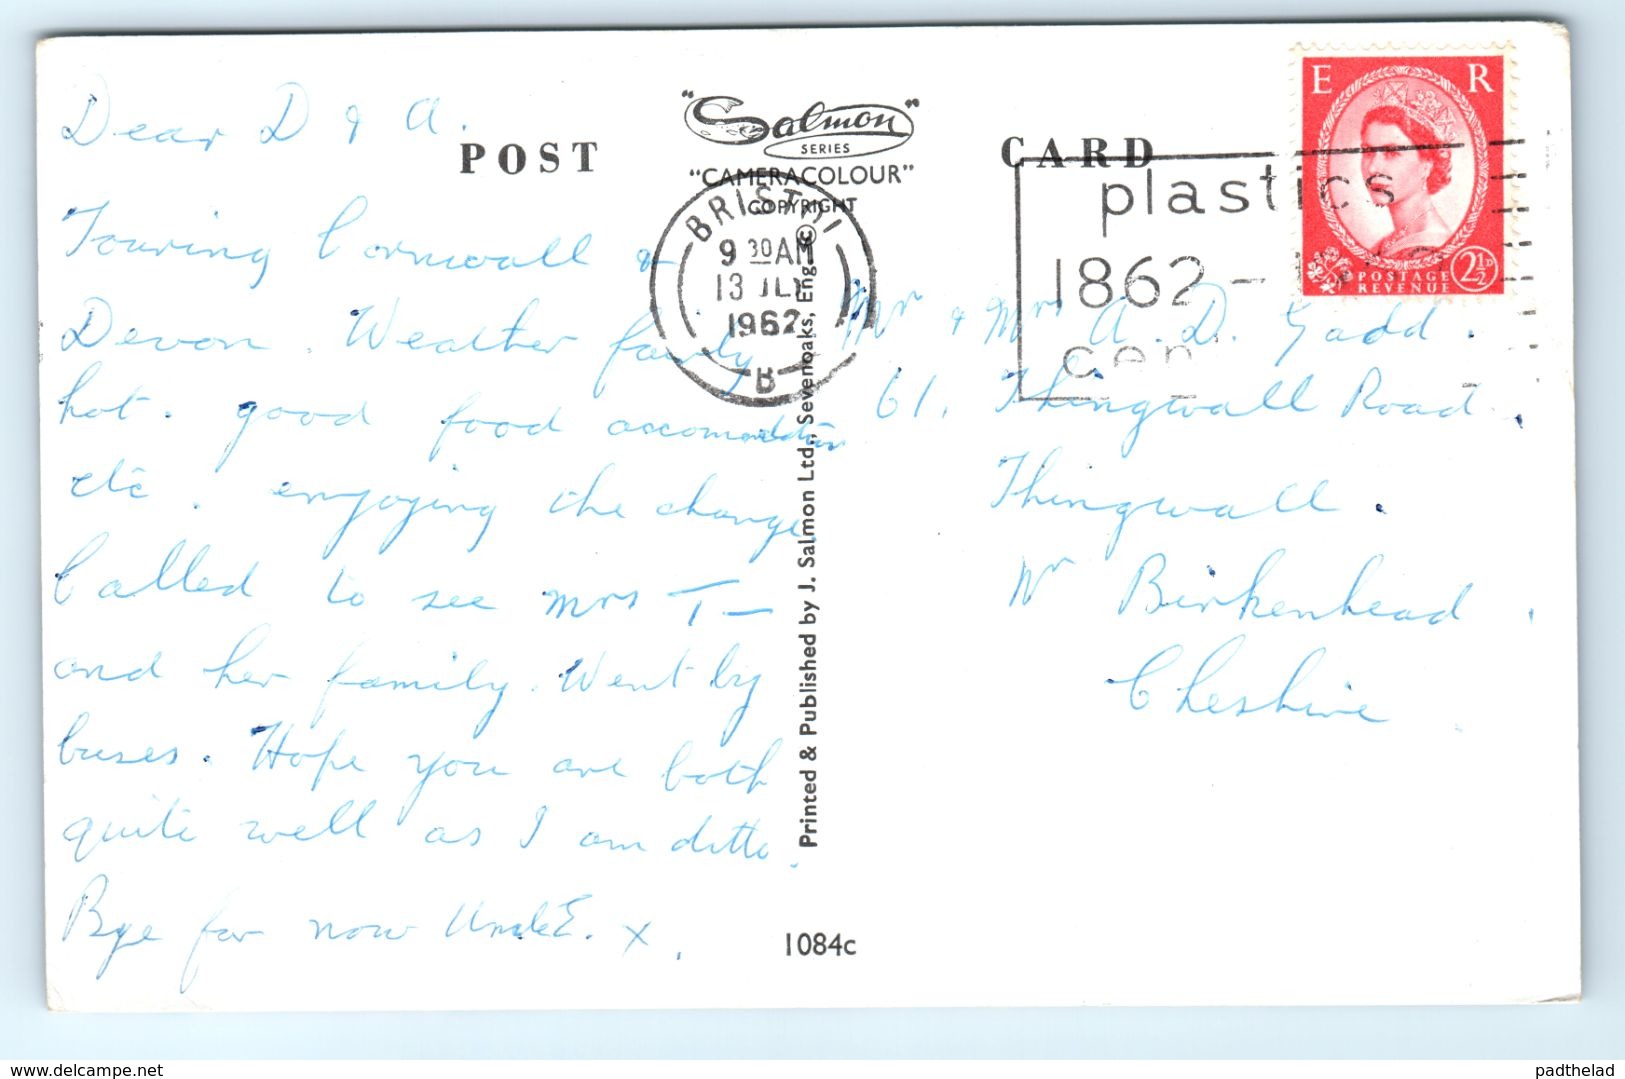 Dear D & A.
Touring Cornwall &
Devon. Weather fairly
hot. good food accomodation
etc. enjoying the change.
Called to see Mrs T—
and her family. Went by
buses. Hope you are both
quite well as I am ditto.
Bye for now Uncle E. x.
POST CARD
"Salmon"
SERIES
"CAMERACOLOUR"
COPYRIGHT
Printed & Published by J. Salmon Ltd., Sevenoaks, Eng. ©
1084c
BRISTOL
9 30 AM
13 JLY
1962
B
plastics
1862 –
cen
E R
POSTAGE
REVENUE
2½D
Mr & Mrs A. D. Gadd.
61. Thingwall Road.
Thingwall.
Nr Birkenhead.
Cheshire
www.delcampe.net
padthelad